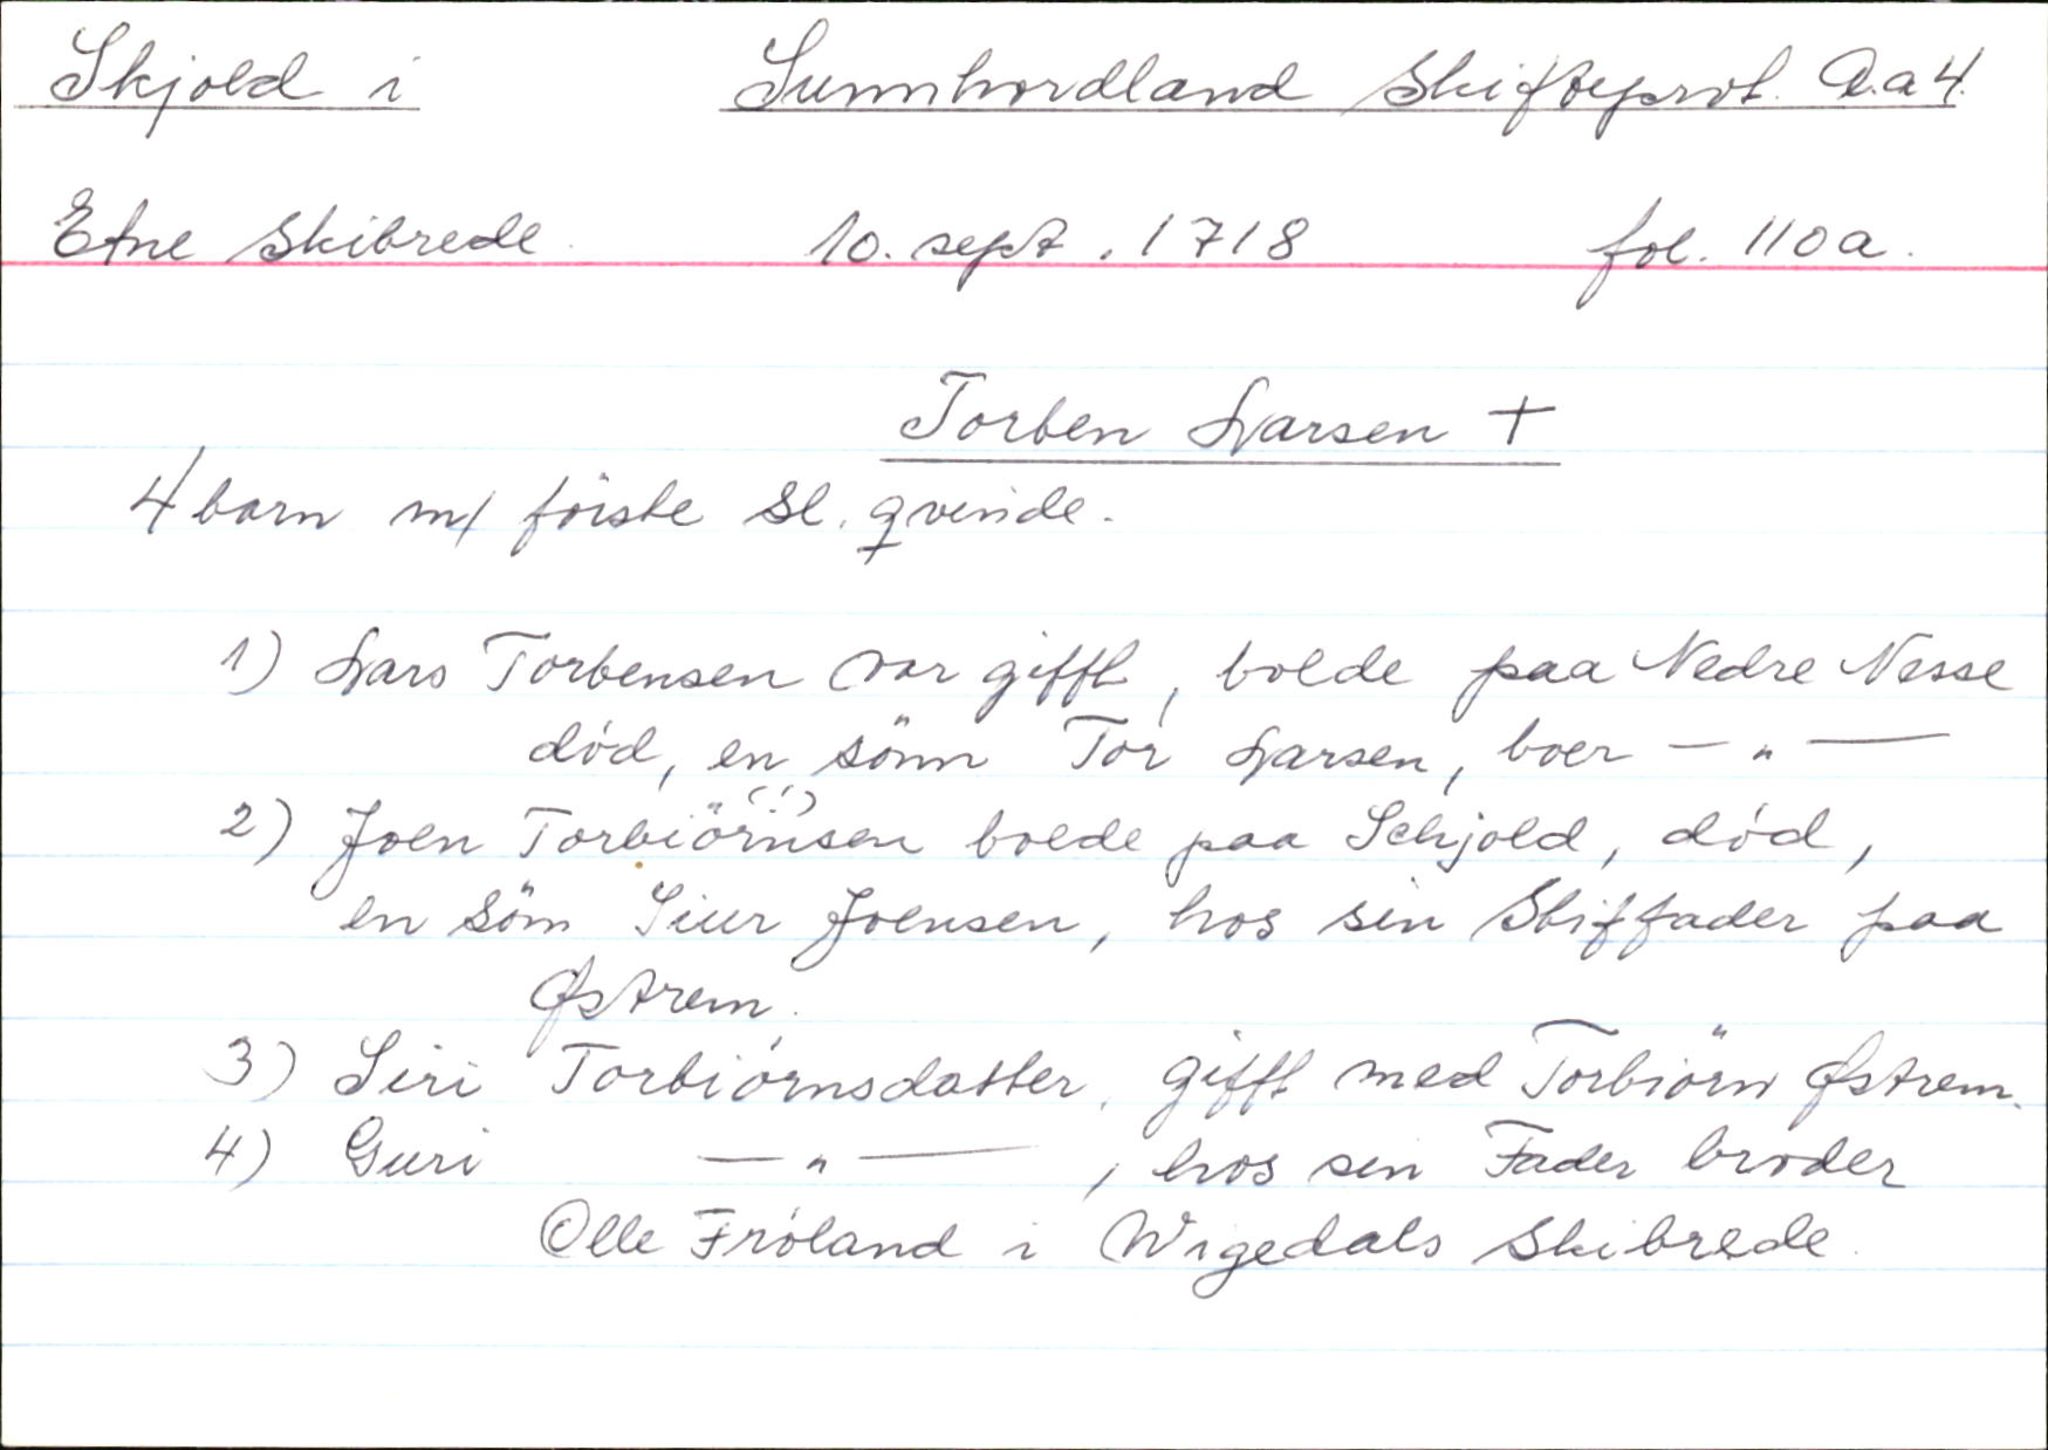 Skjold i Sunnhordland Skifteprot. A.a 4.
Etne Skibrede. 10. sept. 1718 fol. 110a.
Torben Larsen †
4 barn m/ förste Sl. qvinde.
1) Lars Torbensen var gifft, boede paa Nedre Nesse
død, en sönn Tor Larsen, boer — " —
2) Joen Torbiörnsen (!) boede paa Schjold, död,
en sön Siur Joensen, hos sin Stiffader paa
Østrem.
3) Siri Torbiörnsdatter, gifft med Torbiörn Østrem.
4) Guri — " — , hos sin Fader broder
Olle Fröland i Wigedals Skibrede.